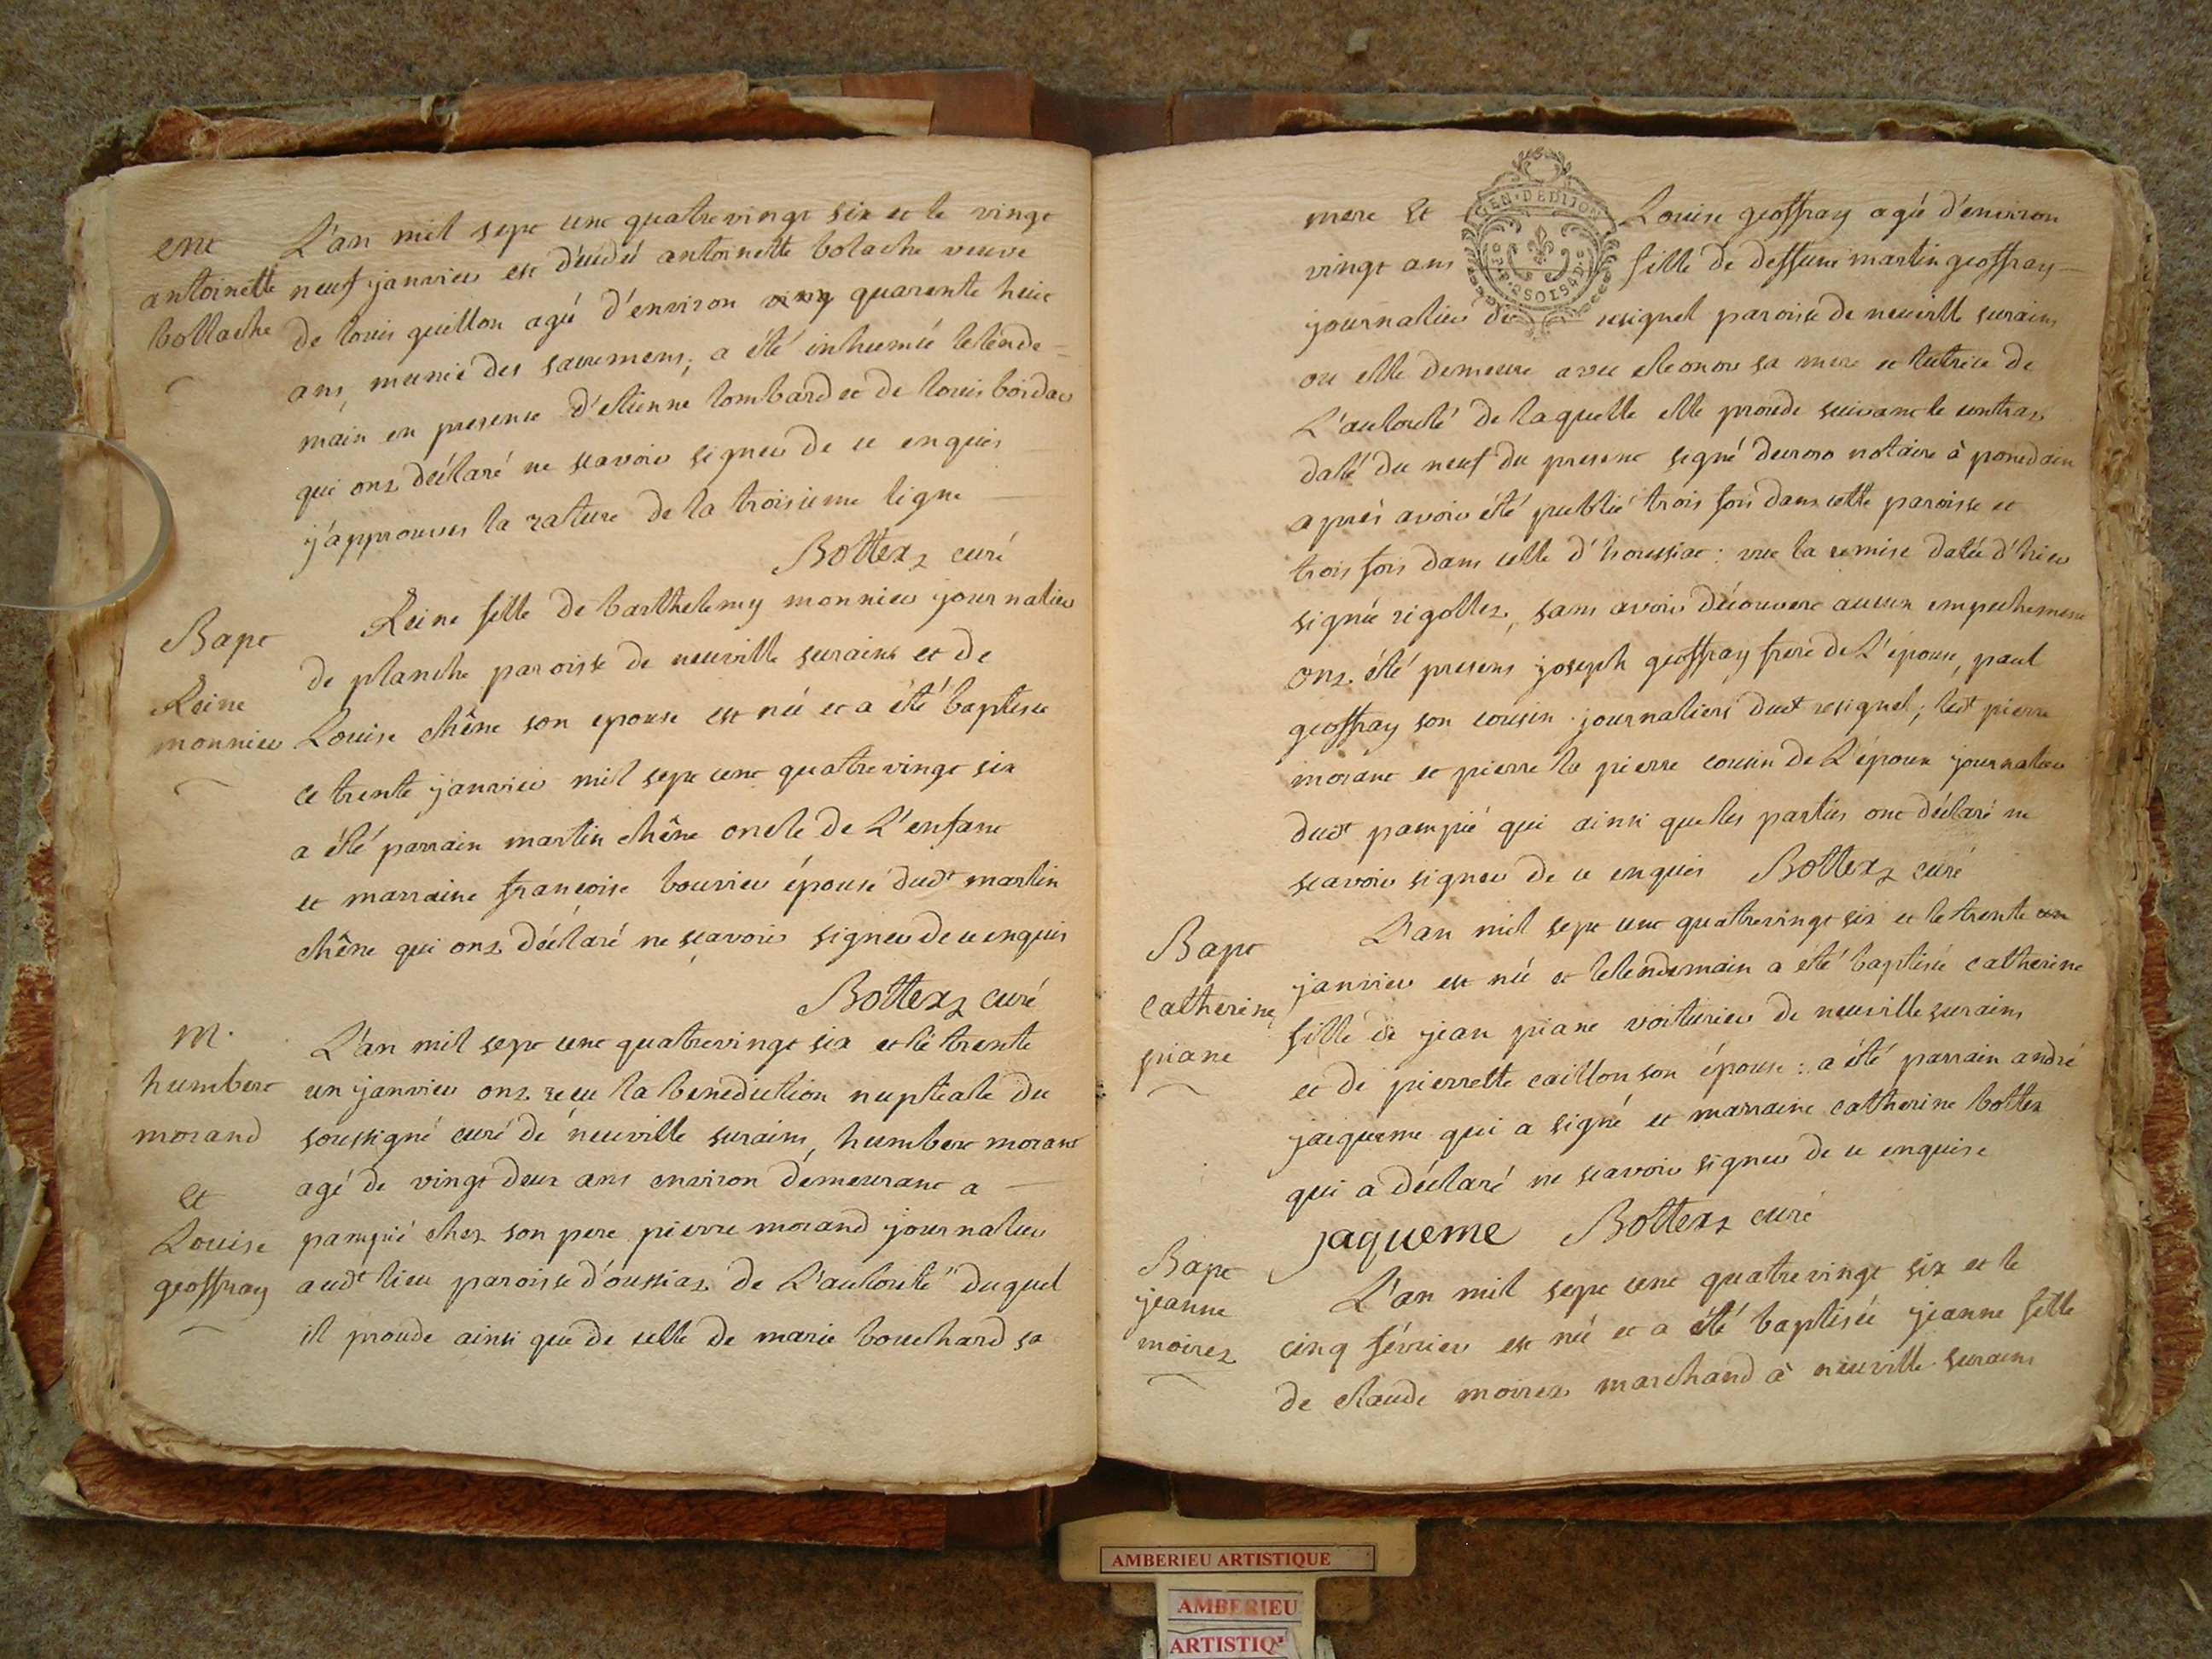 ent
antoinette
bollache
L'an mil sept cent quatrevingt six et le vingt
neuf janvier est décédé antoinette bolache veuve
de louis guillon agé d'environ quarente huit
ans, munie des sacremens, a été inhumée le lende-
main en presence d'etienne lombard et de louis
qui ont déclaré ne scavoir signer de ce enquis
j'approuves la rature de la troisieme ligne
Bottex curé
Bapt
Reine
monnier
Reine fille de barthelemy monnier journalier
de planche paroisse de neuville surains et de
Louise chêne son epouse est née et a été baptisée
ce trente janvier mil sept cent quatrevingt six
a été parrain martin chêne oncle de L'enfant
et marraine françoise bouvier épouse dudt martin
chêne qui ont déclaré ne sçavoir signer de ce enquis
Bottex curé
M.
humbert
morand
et
Louise
geoffray
L'an mil sept cent quatrevingt six et le trente
un janvier ont reçu la benediction nuptiale du
soussigné curé de neuville surains, humbert morand
agé de vingt deux ans environ demeurant a
pampié chez son pere pierre morand journalier
audt lieu paroisse d'oussiat de L'autorité duquel
il procede ainsi que de celle de marie bouchard sa
mere et Louise geoffray agée d'environ
vingt ans fille de deffunt martin geoffray
journalier de resignel paroisse de neuville surains
ou elle demeure avec eleonore sa mere et tutrice de
L'autorité de laquelle elle procede suivant le contrat
daté du neuf du present signé notaire à pontdain
après avoir été publié trois fois dans cette paroisse et
trois fois dans celle d'houssiat: vue la remise datée d'hier
signée rigollet, sans avoir découvert aucun empechement
ont été presens joseph geoffray frere de L'épouse, paul
geoffray son cousin journaliers dudt resignel; ledt pierre
morant et pierre la pierre cousin de L'époux journalier
dudt pampié qui ainsi que les parties ont déclaré ne
scavoir signer de ce enquis Bottex curé
GEN. DE DIJON
Bapt
Catherine
piane
L'an mil sept cent quatrevingt six et le trente un
janvier est née et le lendemain a été baptisée catherine
fille de jean piane voiturier de neuville surains
et de pierrette caillon son épouse: a été parrain andré
jacqueme qui a signé et marraine catherine bottex
qui a déclaré ne scavoir signer de ce enquise
jaqueme Bottex curé
Bapt
jeanne
moirez
L'an mil sept cent quatrevingt six et le
cinq février est née et a été baptisée jeanne fille
de claude moirez marchand à neuville surains
AMBERIEU ARTISTIQUE
AMBERIEU
ARTISTIQ